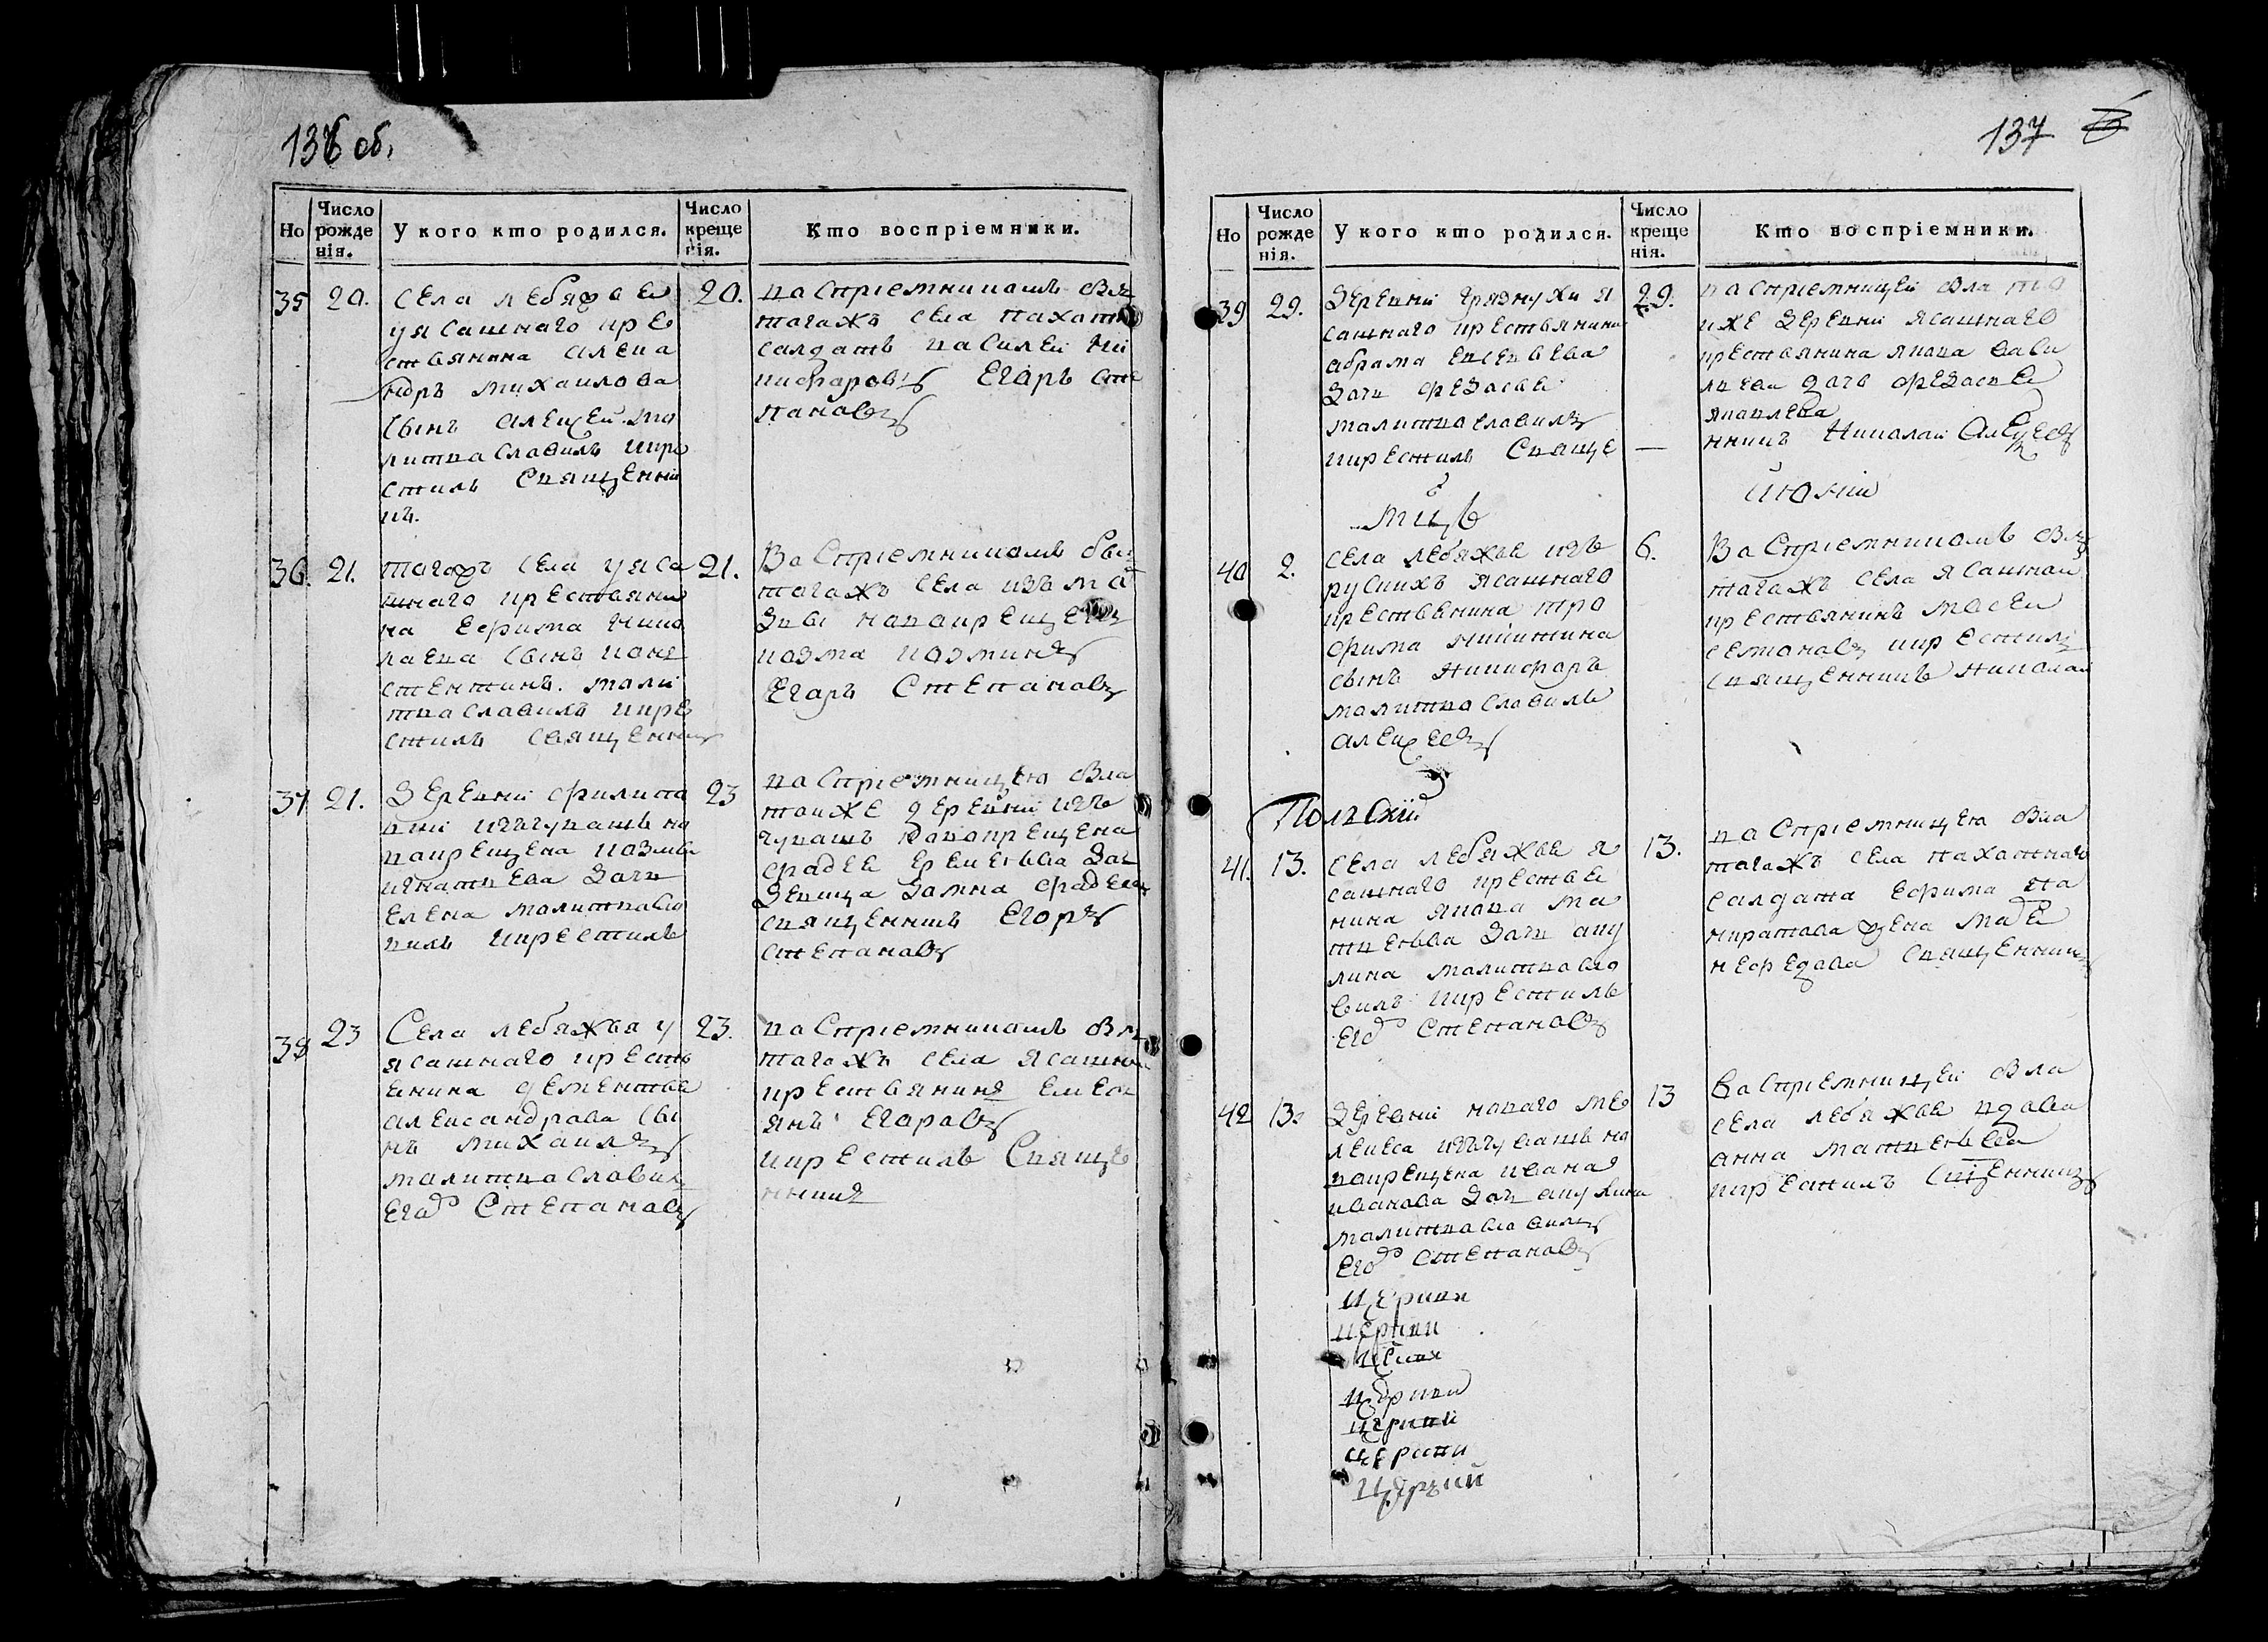 136 об.
Но
Число рожде нія.
У кого кто родился.
Число креще нія.
Кто воспріемники.
35
20.
села лебяжъ ей
у ясашнаго кре
стьянина алекса
ндръ михаилова
сынъ алеѯей мо
литвославилъ икре
стилъ священни
къ.
20.
васпріемникомъ былъ
тогожъ села пахатной
салдатъ василей ни
кифаровъ Егаръ сте
пановъ
36.
21.
тогожъ села у яса
шнаго крестьяни
на ефима нико
лаева сынъ конс
стентинъ. моли
твославилъ икре
стилъ священникъ
21.
Васпріемникомъ былъ
тогожъ села изъ мо
рдвы новокрещенъ
козма козминъ
Егаръ Степановъ
37
21.
деревни филипо
вки изчувашъ но
вокрещена козмы
игнатьева дочь
елена молитвосло
вилъ икрестилъ
23
васпріемницею была
тойже деревни изъ
чувашъ новокрещена
фадея еремеева доч
священникъ Егоръ
степановъ
38
23
Села лебяжъя у
ясашнаго кресть
енина дементья
александрава сы
нъ михаилъ
молитвославилъ
Его Степановъ
23.
васпріемникомъ былъ
тогожъ села ясашной
крестьянинъ емель
янъ егаровъ
икрестилъ Свяще
нникъ
137
Но
Число рожде нія.
У кого кто родился.
Число креще нія.
Кто воспріемники.
39
29.
деревни грязнухи я
сашнаго крестьянина
абрама
дочь федосья
молитвославилъ
икрестилъ Свяще
29.
васпріемницей была то
йже деревни ясашного
крестьянина якова сави
льева дочь федосья
яковлева
нникъ Николай Алеѯеевъ
мцъ
июлии
40
2.
села лебяжье изъ
рускихъ ясашнаго
крестьянина тро
фима никитина
сынъ никифаръ
молитвославилъ
алеѯеевъ
6.
Васпріемникомъ былъ
тогожъ села ясашной
крестьянинъ мосей
семоновъ икрестилъ
священникъ николай
Польскій
41.
13.
села лебяжье я
сашнаго крестья
нина якова ма
твеева дочь аку
лина молитвосло
вилъ икрестилъ
Его Степановъ
13.
васпріемницею была
тогожъ села пахатнаго
салдата ефима па
нкратова жена мате
нефедова священникъ
42
13.
деревни новаго ме
лекеса изчувашъ но
вокрещена ивана
иванова доч акулина
молитвославилъ
Его степановъ
13
васпріемницей была
села лебяжье вдова
анна матвеева
икрестилъ священникъ
церкви
церкви
церкви
церкви
церкви
церкви